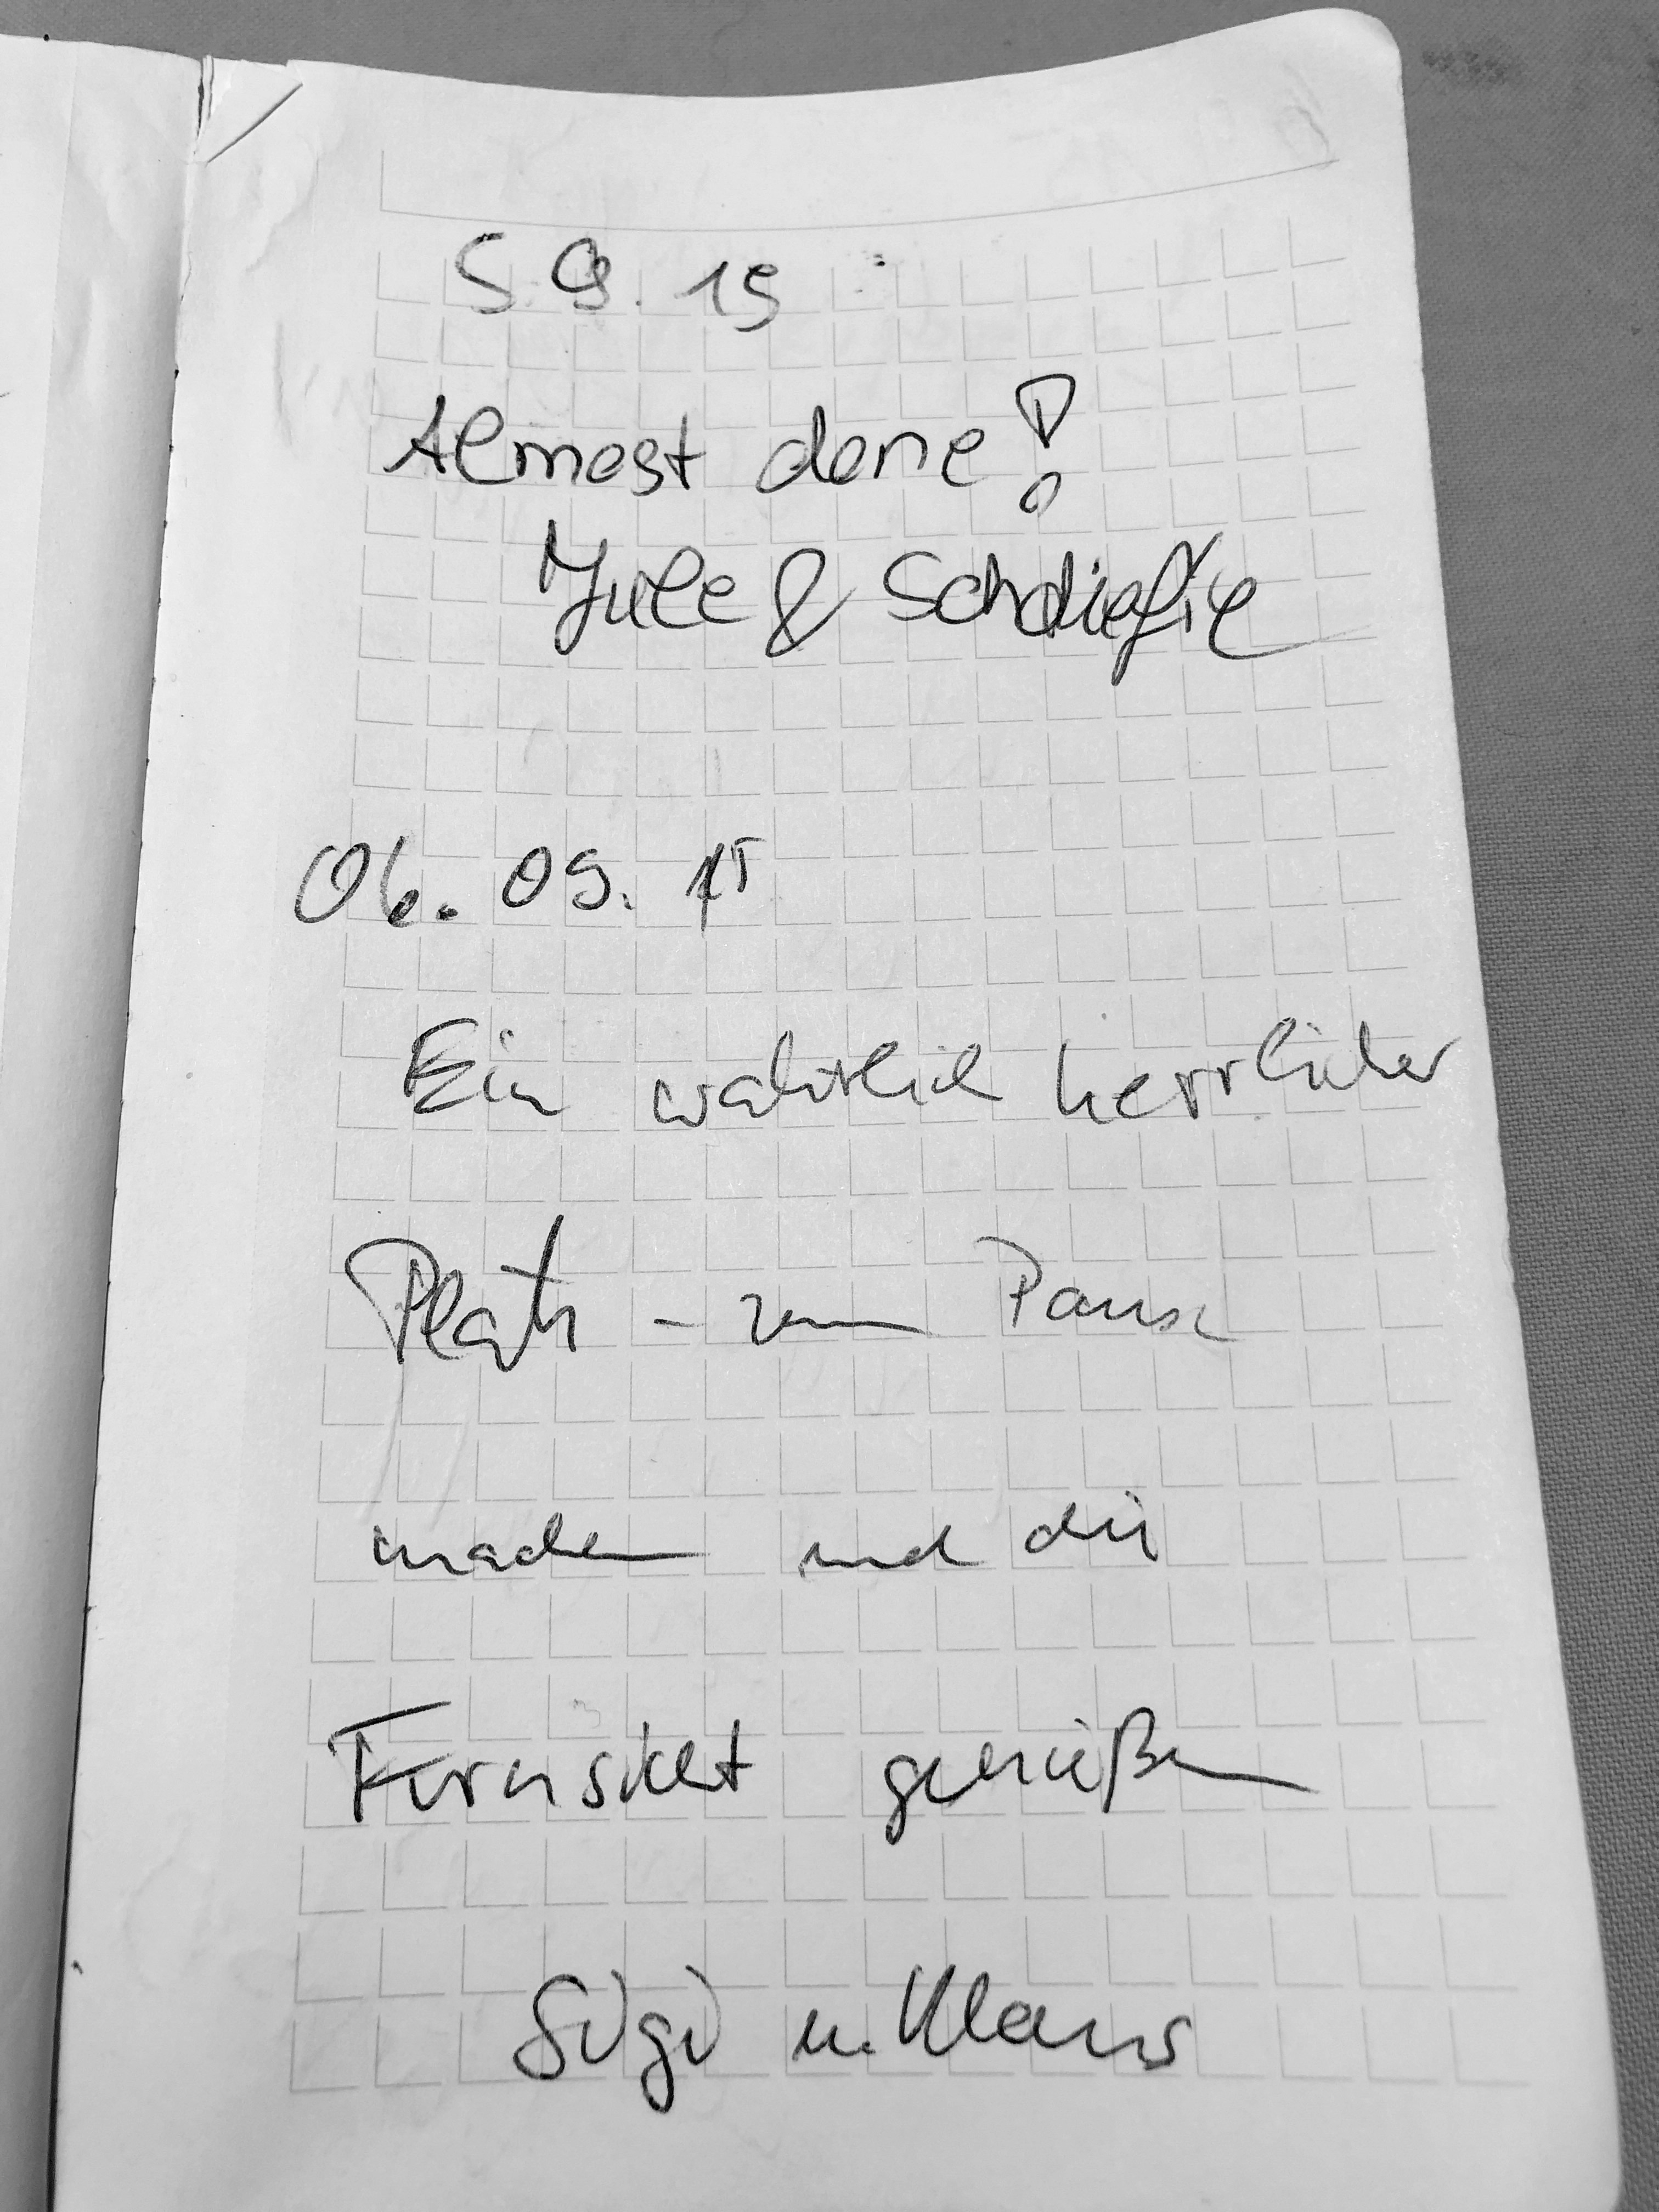 5 9. 19
Almost done!
Jule &
06. 09. 15
Ein wahrlich herrlicher
Platz - zum Pause
machen und die
Fernsicht genießen
Sigi u. Klaus